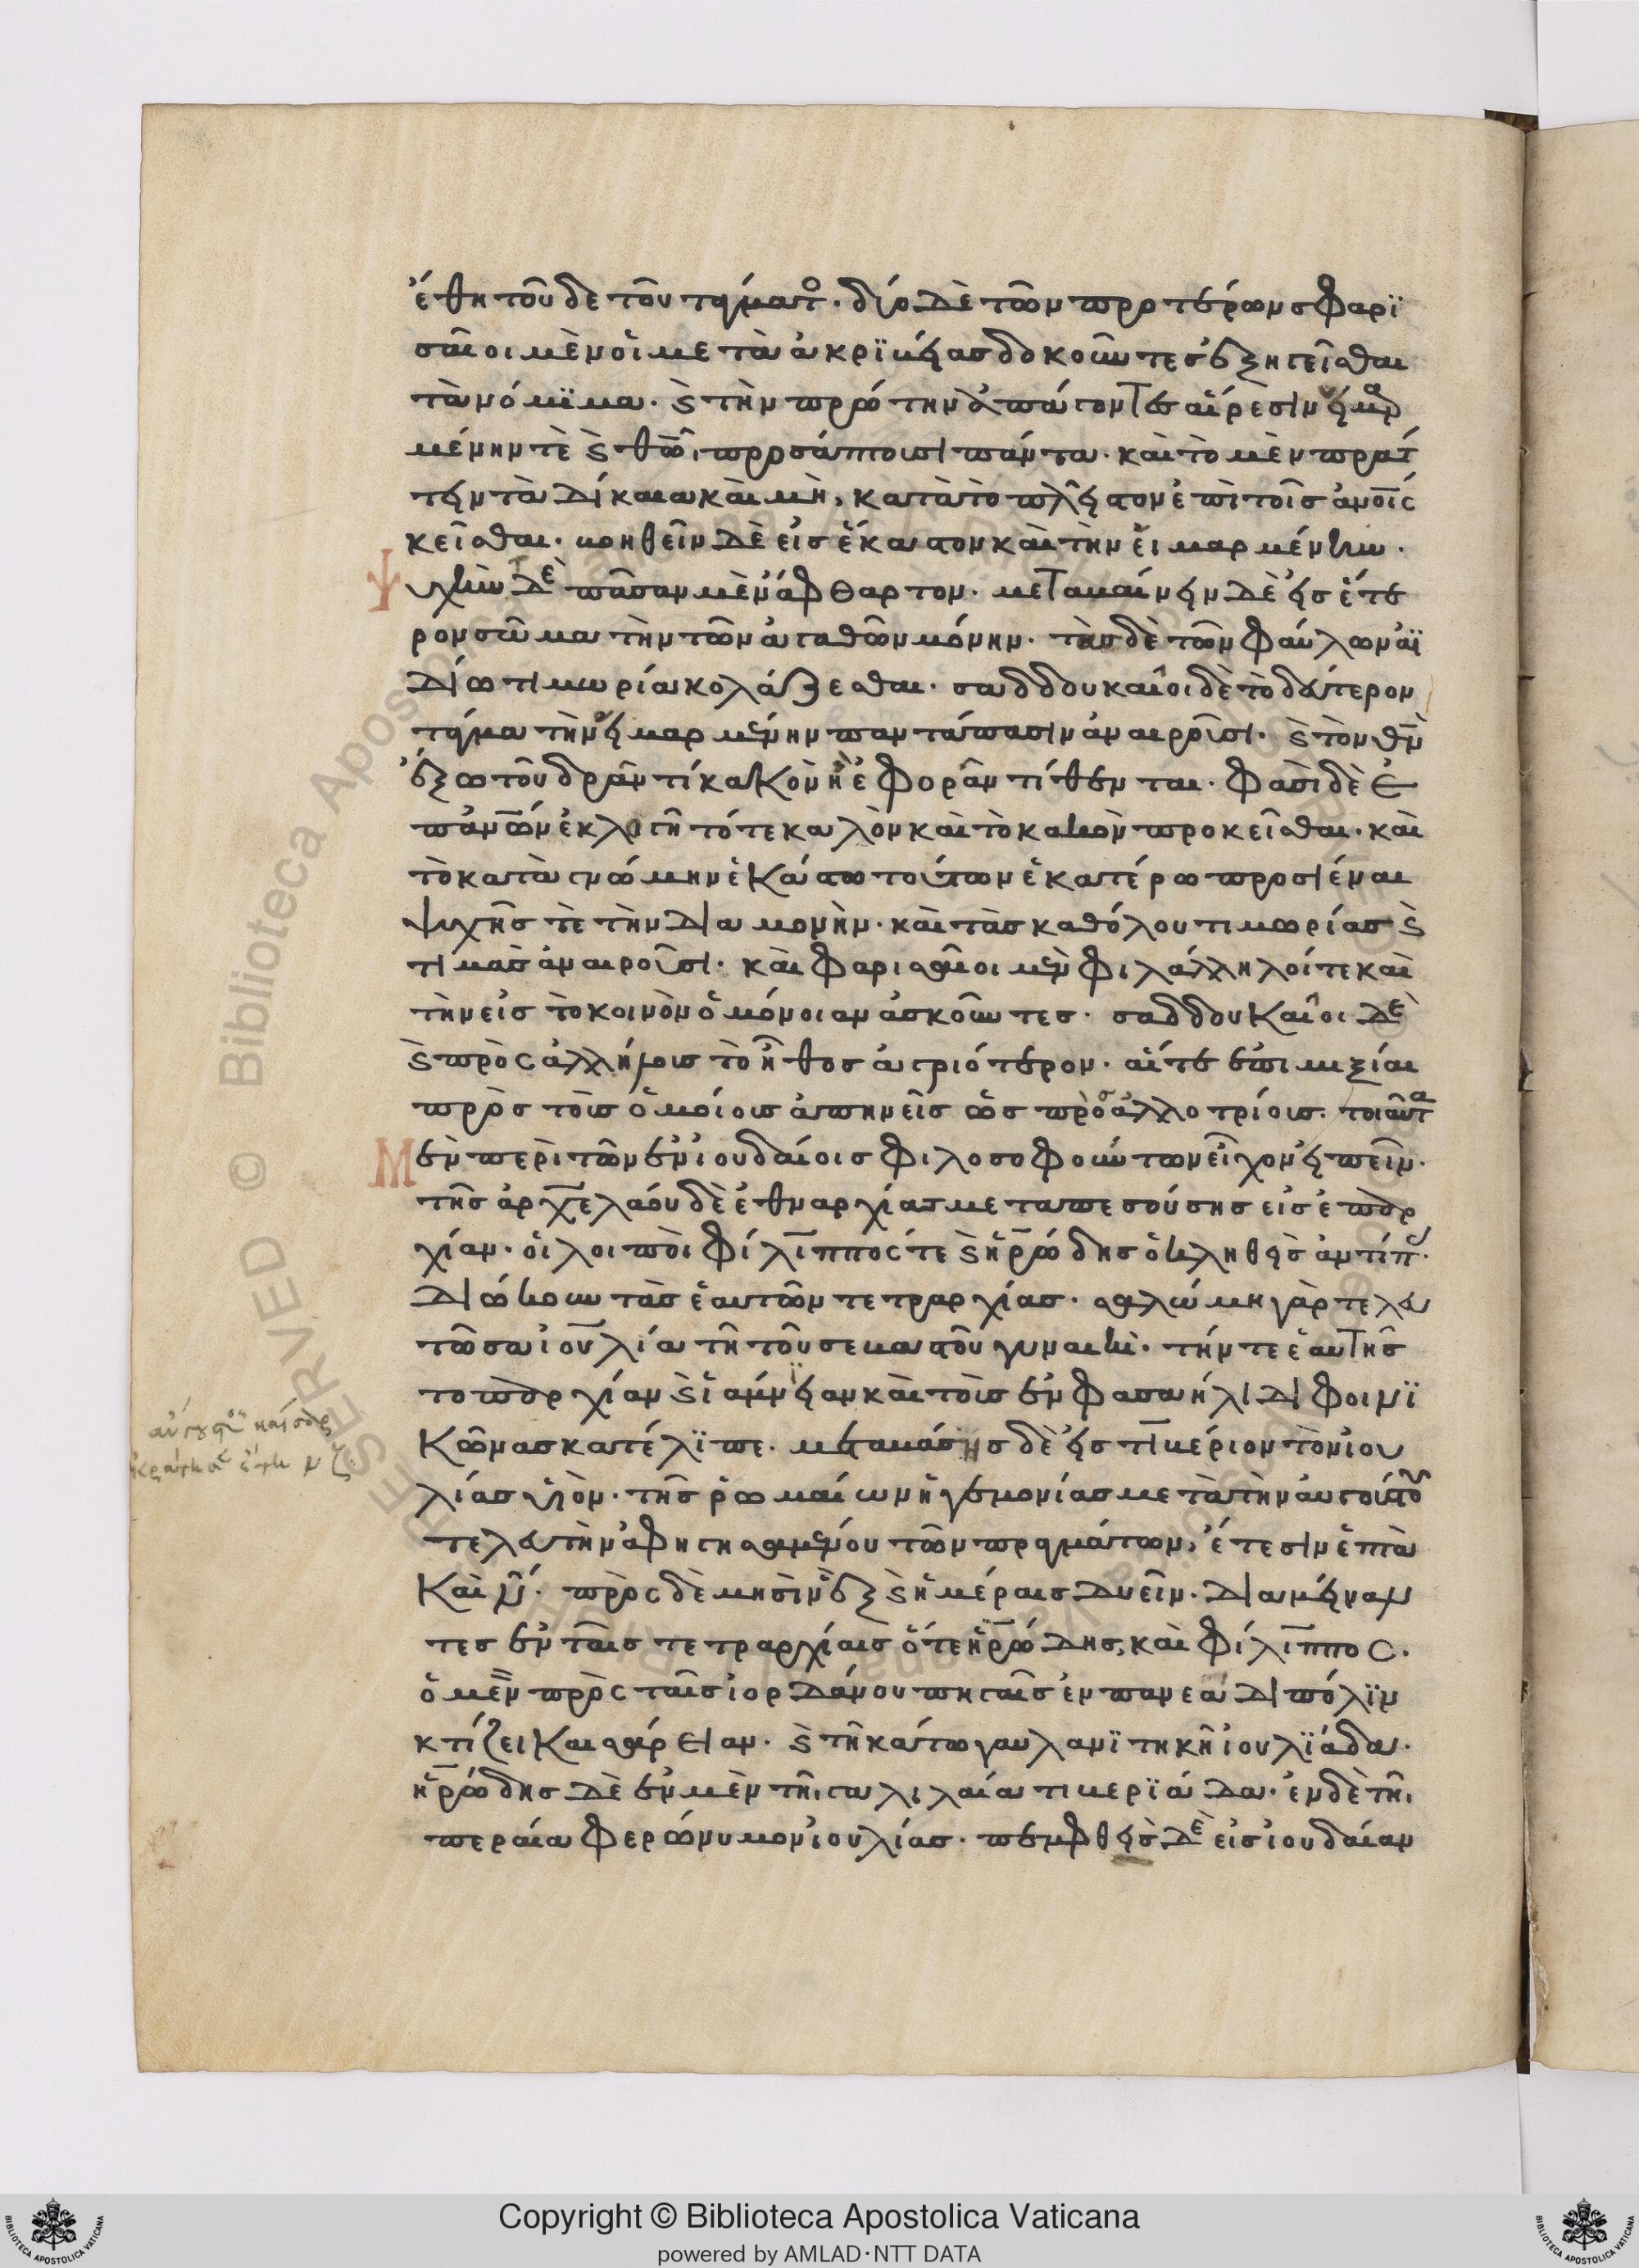 ἔθη τοῦδε τοῦ τάγματος. δύο δὲ τῶν προτέρων φαρι
σαῖοι μὲν οἱ μετὰ ἀκριβείας δοκοῦντες ἐξηγεῖσθαι
τὰ νόμιμα. καὶ τὴν πρώτην ἀπάγοντες αἵρεσιν εἱμαρ
μένην τὲ καὶ θεῶι προσάπτουσι πάντα. καὶ τὸ μὲν πράτ
τειν τὰ δίκαια καὶ μὴ, κατὰ τὸ πλεῖστον ἐπὶ τοῖς ἀνοις
κεῖσθαι. βοηθεῖν δὲ εἰς ἕκαστον καὶ τὴν εἱμαρμένην.
Ψυχὴν δὲ πᾶσαν μὲν ἄφθαρτον. μεταβαίνειν δὲ εἰς ἕτε
ρον σῶμα τὴν τῶν ἀγαθῶν μόνην. τὴν δὲ τῶν φαύλων ἀϊ
δίω τιμωρία κολάζεσθαι. σαδδουκαῖοι δὲ τὸ δεύτερον
τάγμα τὴν εἱμαρμένην παντάπασιν ἀναιροῦσι. καὶ τὸν θν
ἔξω τοῦ δρᾶν τί κακὸν ἢ ἐφορᾶν τίθενται. φασὶ δὲ ἐ
π ἀνων ἐκλογῆ τότε καλὸν καὶ τὸ κακὸν προκεῖσθαι. καὶ
τὸ κατὰ γνώμην ἑκάστω τούτων ἑκατέρω προσιέναι
ψυχῆς τὲ τὴν διαμονὴν. καὶ τὰς καθόλου τιμωρίας καὶ
τιμὰς ἀναιροῦσι. καὶ φαρισαῖοι μὲν φιλάλληλοί τε καὶ
τὴν εἰς τὸ κοινὸν ὁμόνοιαν ἀσκοῦντες. σαδδουκαῖοι δὲ
καὶ πρὸς ἀλλήλους τὸ ἦθος ἀγριότερον. αἵ τε ἐπιμιξίαι
πρὸς τοὺς ὁμοίους ἀπηνεῖς ὡς πρὸς ἀλλοτρίους. τοιαῦτα
Μἐν περὶ τῶν ἐν ἰουδαίοις φιλοσοφούντων εἶχον εἰπεῖν.
τῆς ἀρχελάου δὲ ἐθναρχίας μεταπεσούσης εἰς ἐπαρ
χίαν. οἱ λοιποὶ φίλιππός τε καὶ ἡρώδης ὁ κληθεὶς ἀντίπας.
διώκουν τὰς ἑαυτῶν τετραρχίας. σαλώμη γὰρ τελευ
τῶσα ἰουλία τῆ τοῦ σεβαστοῦ γυναικὶ. τήν τε ἑαυτῆς
τοπαρχίαν καὶ ἰάμνειαν καὶ τοὺς ἐν φασαήλιδι φοινι
κῶνας κατέλιπε. μεταβάσης δὲ εἰς τιβέριον τὸν ἰου
λίας υἱὸν. τῆς ῥωμαίων ἡγεμονίας μετὰ τὴν αὐγούστου
τελευτὴν ἀφηγησαμένου τῶν πραγμάτων, ἔτεσιν ἑπτὰ
καὶ ν. πρὸς δὲ μησὶν ἓξ καὶ ἡμέραις δυεῖν. διαμείναν
τες ἐν ταῖς τετραρχίαις ὅτε ἡρώδης, καὶ φίλιππος.
ὁ μὲν πρὸς ταῖς ἰορδάνου πηγαῖς ἐν πανεάδι πόλιν
κτίζει καισάρειαν. καὶ τῆ κάτω γαυλανιτηκῆ ἰουλιάδα.
ἡρώδης δὲ ἐν μὲν τῆι γαλιλαία τιβεριάδα. ἐν δὲ τῆι
περαία φερώνυμον ἰουλίας. πεμφθεὶς δὲ εἰς ἰουδαίαν